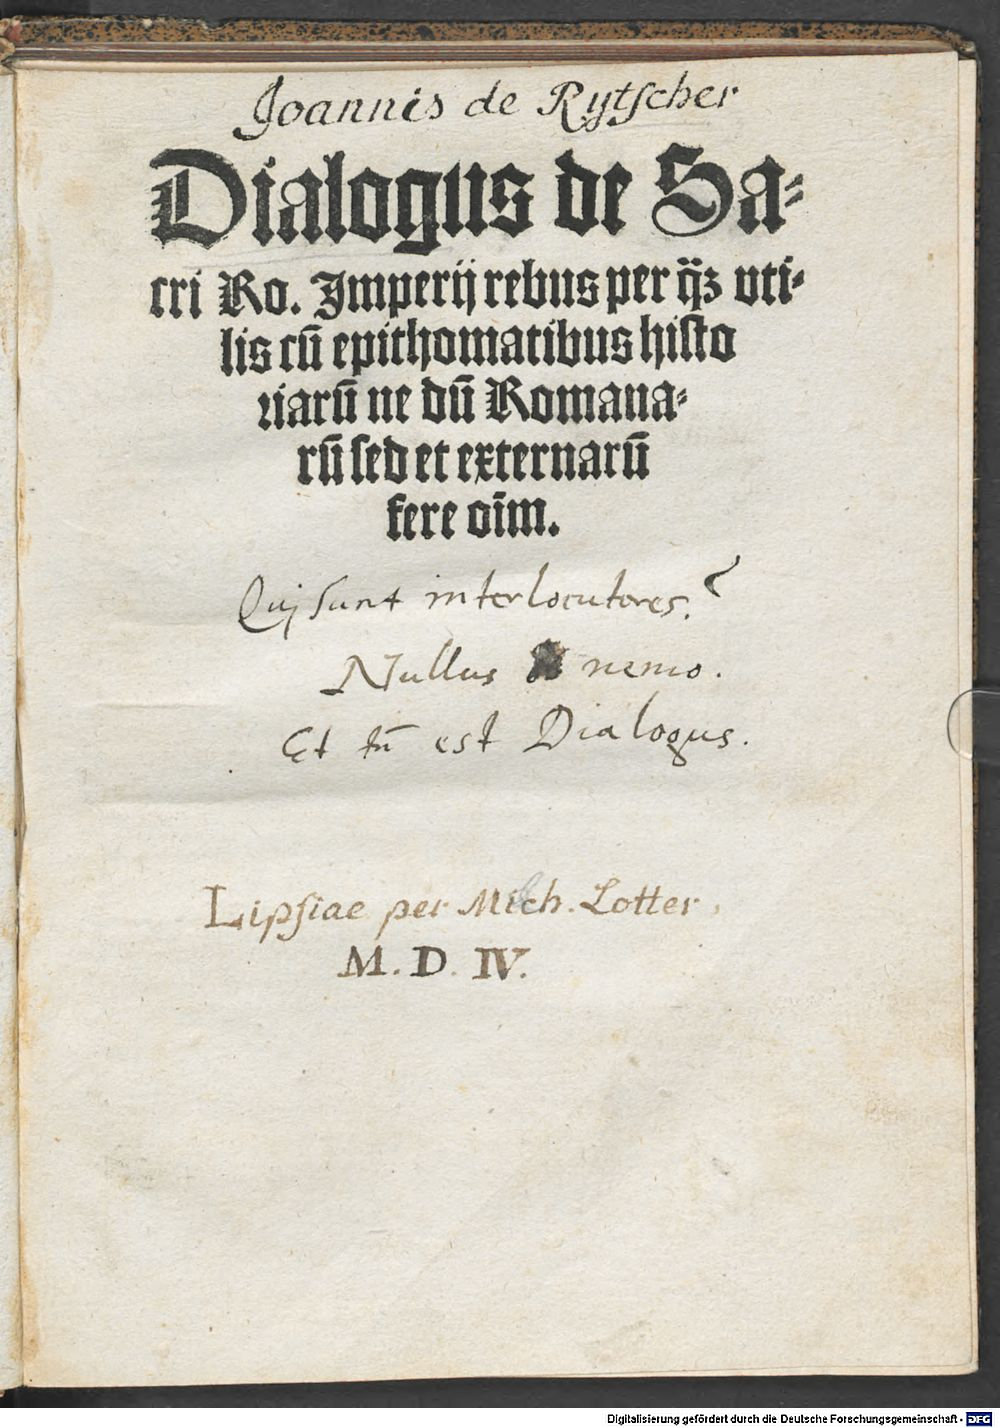 Joannis de Rytſcher
Dialogus de Sa⸗
cri Ro. Imperij rebus per q̈ꝫ vti⸗
lis cū epithomatibus hiſto
riarū ne dū Romana⸗
rū ſed et externarū
fere oīm.
Quj ſunt interlocutores?
Nullus nemo.
Et tn̄ est Dialogus.
Lipſiae per Mich. Lotter.
M. D. IV.
Digitalisierung gefördert durch die Deutsche Forschungsgemeinschaft - DFG